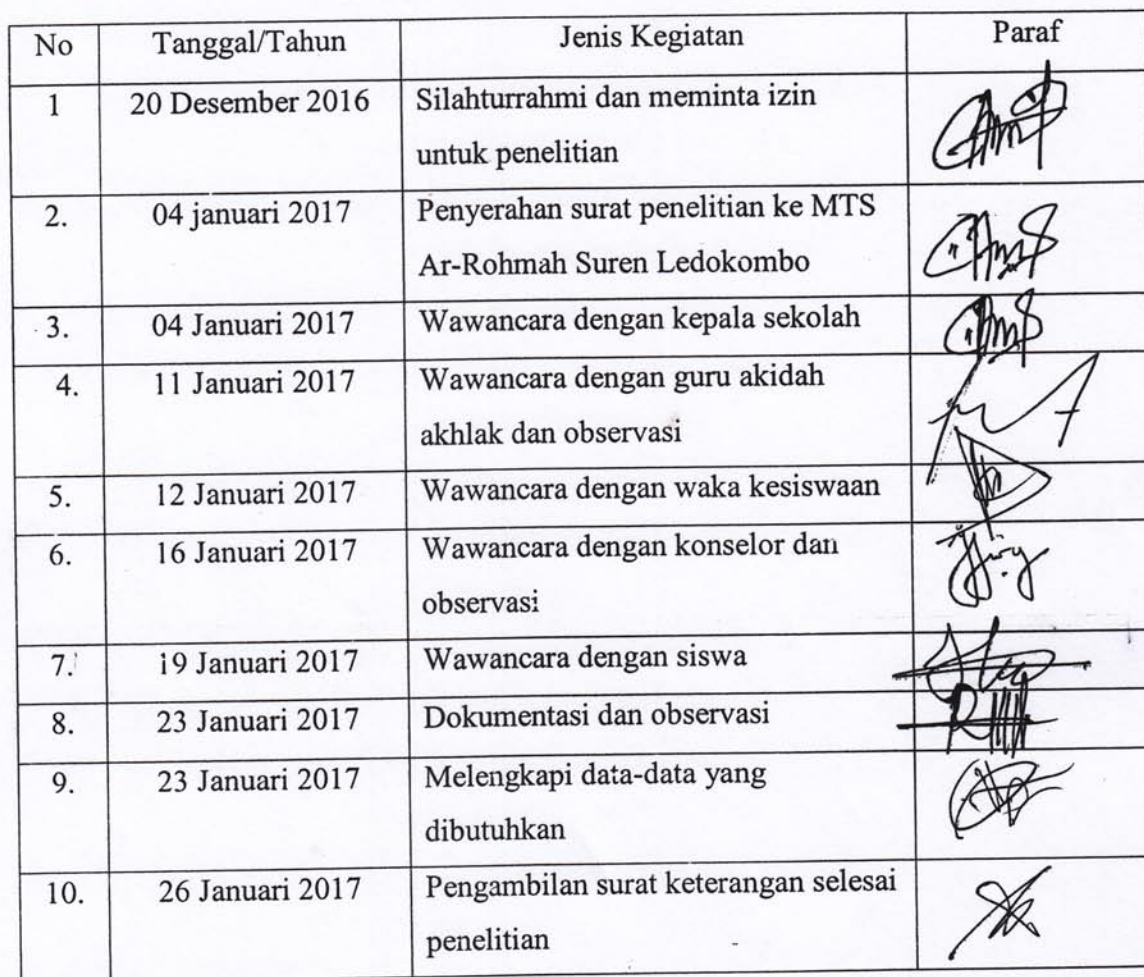 No Tanggal/Tahun Jenis Kegiatan Paraf
1 20 Desember 2016 Silahturrahmi dan meminta izin
untuk penelitian
2. 04 januari 2017 Penyerahan surat penelitian ke MTS
Ar-Rohmah Suren Ledokombo
3. 04 Januari 2017 Wawancara dengan kepala sekolah
4. 11 Januari 2017 Wawancara dengan guru akidah
akhlak dan observasi
5. 12 Januari 2017 Wawancara dengan waka kesiswaan
6. 16 Januari 2017 Wawancara dengan konselor dan
observasi
7. 19 Januari 2017 Wawancara dengan siswa
8. 23 Januari 2017 Dokumentasi dan observasi
9. 23 Januari 2017 Melengkapi data-data yang
dibutuhkan
10. 26 Januari 2017 Pengambilan surat keterangan selesai
penelitian